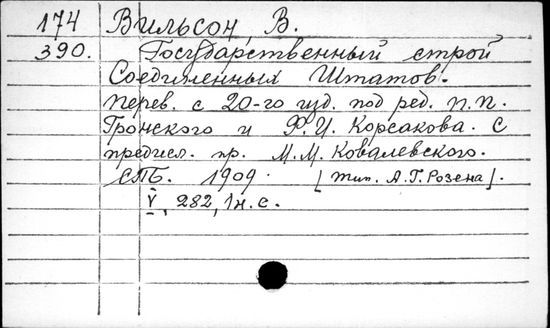 174 Вильсон, В.
390. Государственный строй
Соединенных Штатов.
Перев. с 20-го изд. под ред. П.П.
Гронского и Ф.И. Корсакова. С
предисл. пр. М.М. Ковалевского.
СПБ. 1909. [тип. А.Г. Розена].
V, 282, 1н.с.